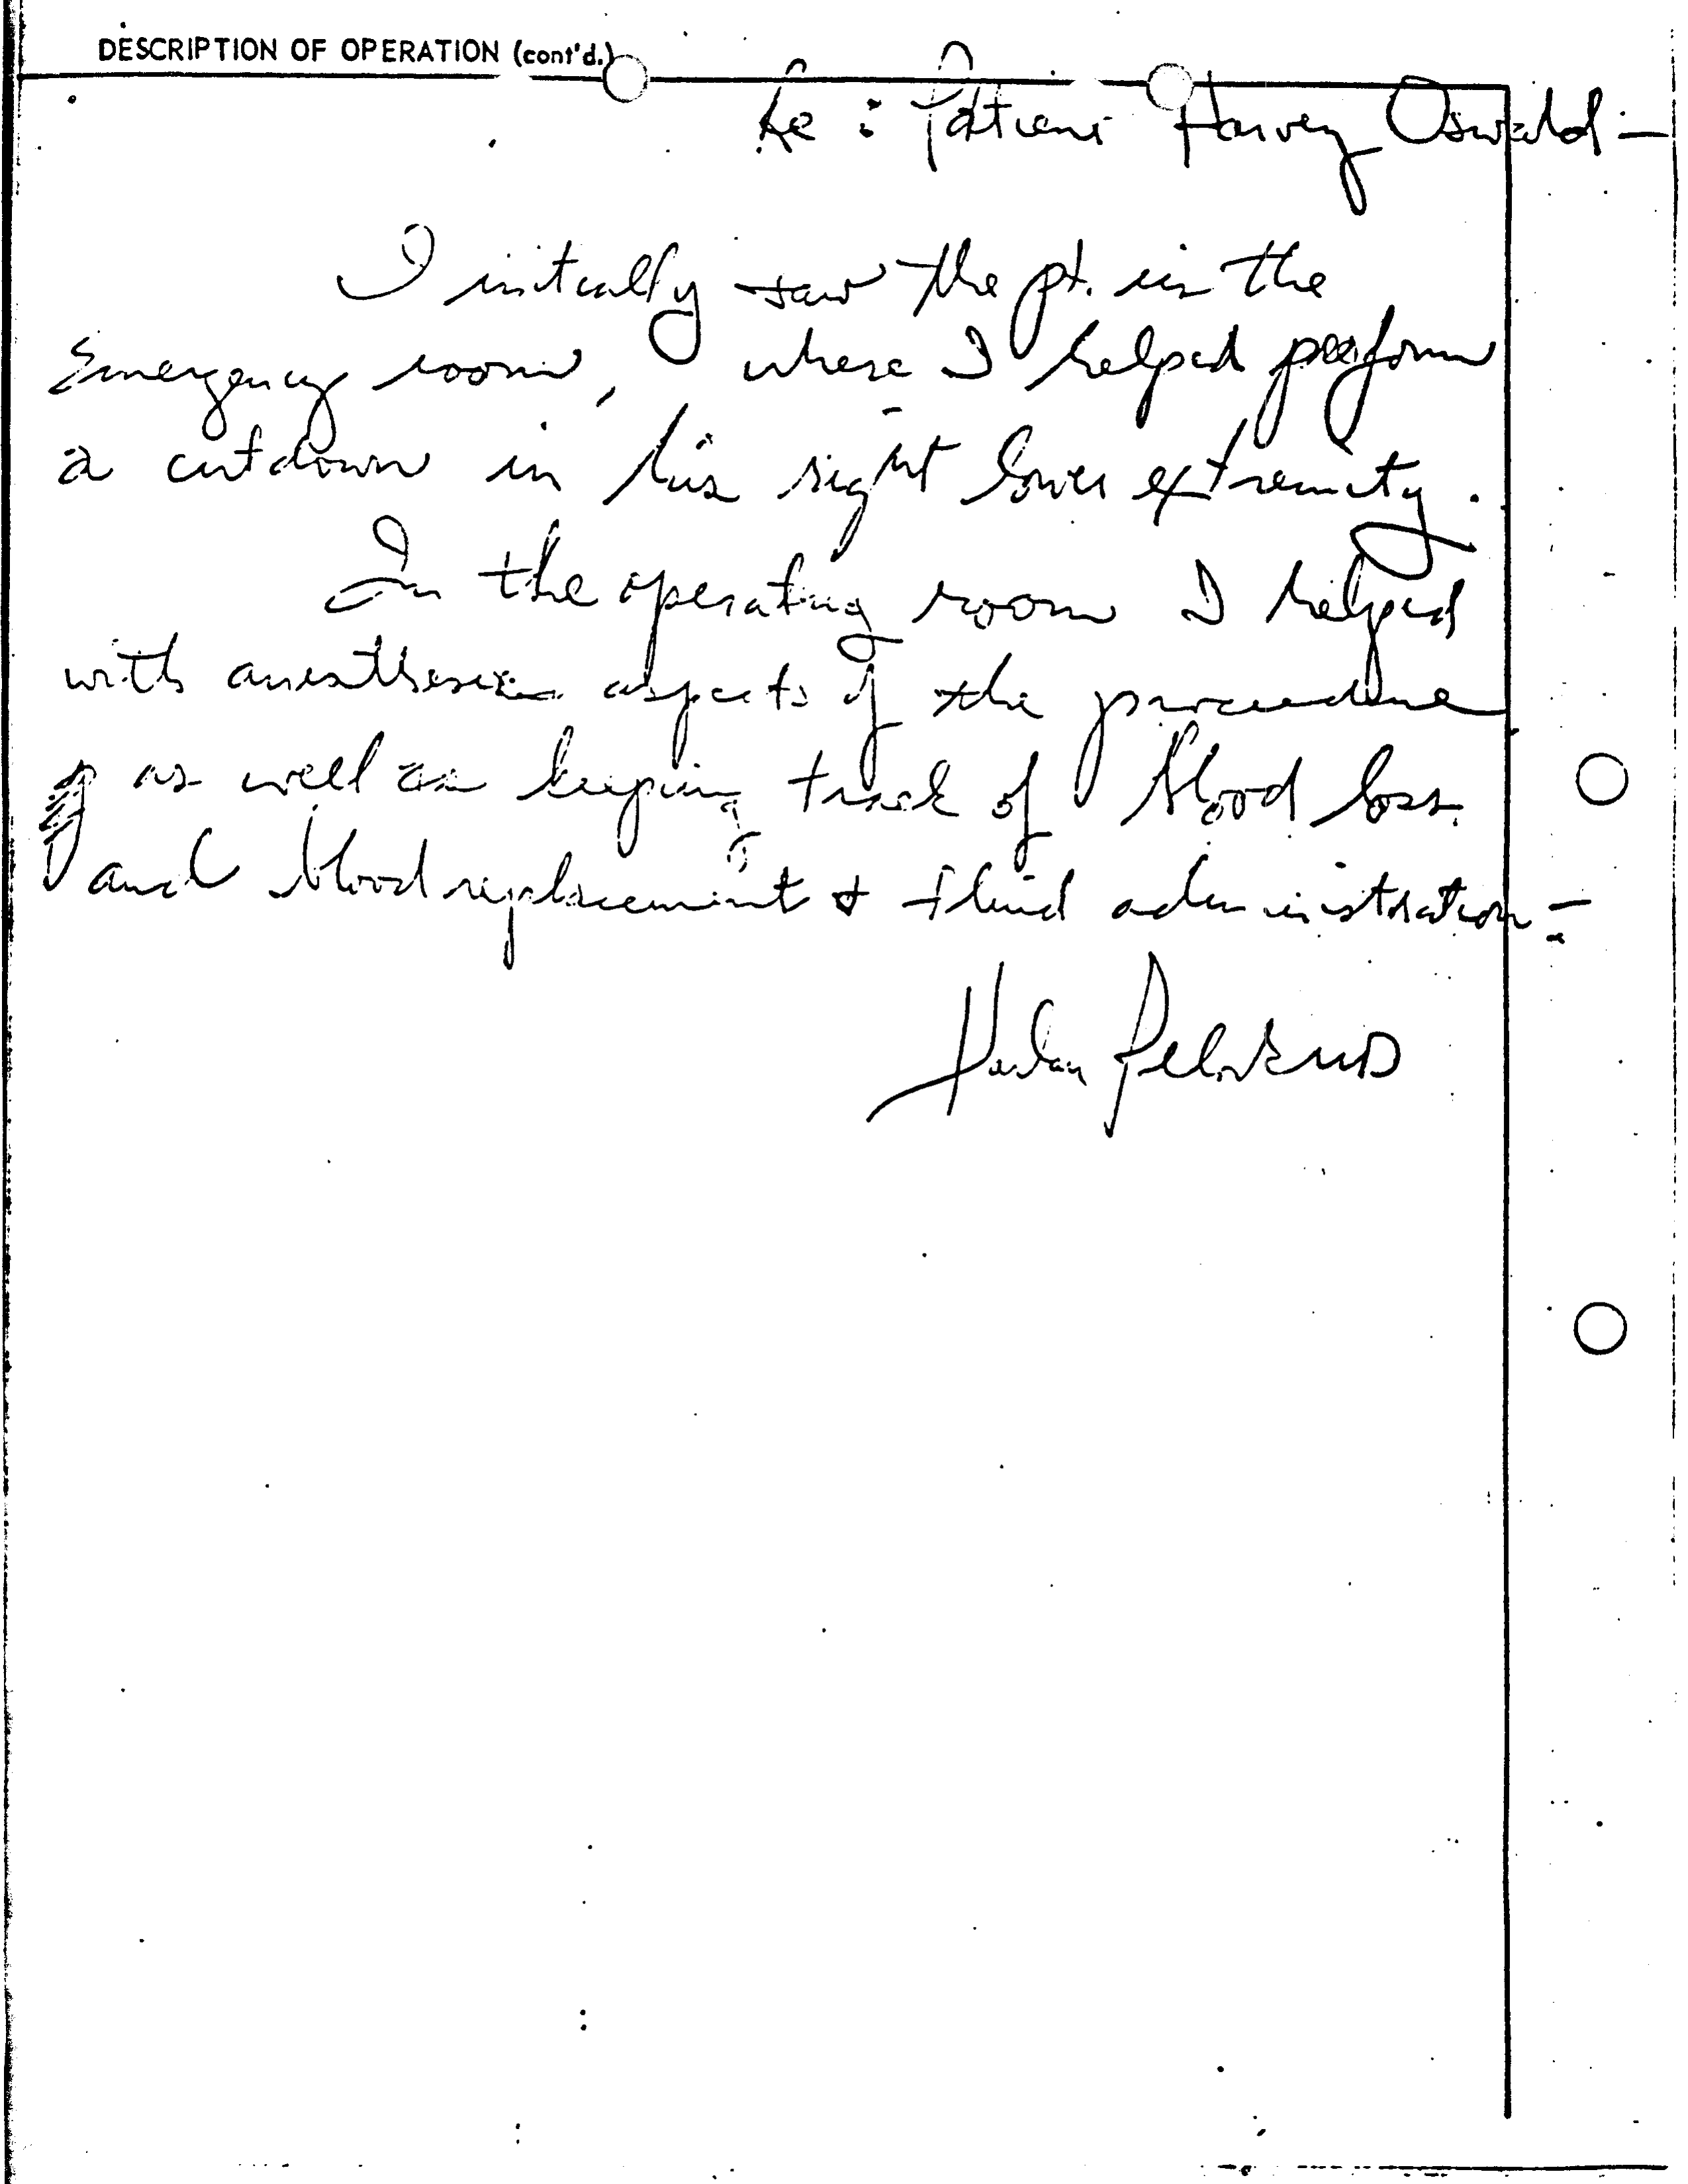 DESCRIPTION OF OPERATION (cont'd.)
Re: Patient Harvey Oswald —
I initially saw the pt. in the
Emergency room, where I helped perform
a cutdown in his right lower extremity.
In the operating room I helped
with anesthesia aspects of the procedure
as well as keeping track of blood loss
and blood replacement & fluid administration -
MD